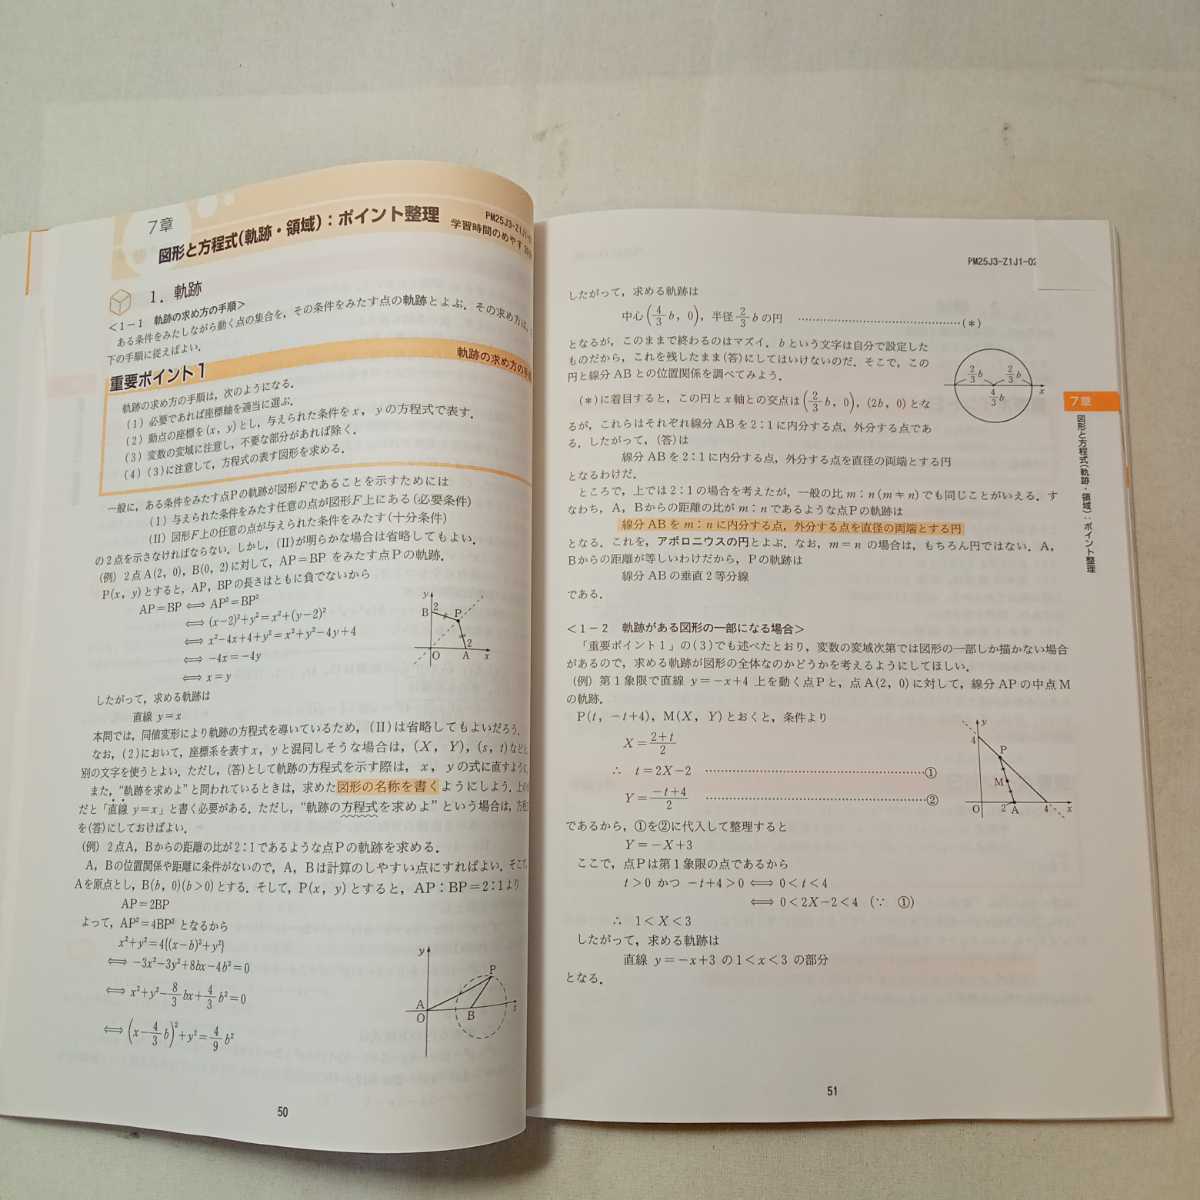 7章
図形と方程式(軌跡・領域)：ポイント整理
PM25J3-Z1J1-
学習時間のめやす
1．軌跡
＜1－1　軌跡の求め方の手順＞
ある条件をみたしながら動く点の集合を，その条件をみたす点の軌跡とよぶ．その求め方は，
下の手順に従えばよい．
重要ポイント1
軌跡の求め方の手順
軌跡の求め方の手順は，次のようになる．
(1) 必要であれば座標軸を適当に選ぶ．
(2) 動点の座標を(x，y)とし，与えられた条件をx，yの方程式で表す．
(3) 変数の変域に注意し，不要な部分があれば除く．
(4) (3)に注意して，方程式の表す図形を求める．
一般に，ある条件をみたす点Pの軌跡が図形Fであることを示すためには
(I) 与えられた条件をみたす任意の点が図形F上にある(必要条件)
(II) 図形F上の任意の点が与えられた条件をみたす(十分条件)
の2点を示さなければならない．しかし，(II)が明らかな場合は省略してもよい．
(例) 2点A(2，0)，B(0，2)に対して，AP＝BP をみたす点Pの軌跡．
P(x，y)とすると，AP，BPの長さはともに負でないから
AP＝BP ⟺ AP²＝BP²
⟺ (x−2)²+y²＝x²+(y−2)²
⟺ x²−4x+4+y²＝x²+y²−4y+4
⟺ −4x＝−4y
⟺ x＝y
y
B
2
P
O
A
2
x
したがって，求める軌跡は
直線 y＝x
本問では，同値変形により軌跡の方程式を導いているため，(II)は省略してもよいだろう．
なお，(2)において，座標系を表すx，yと混同しそうな場合は，(X，Y)，(s，t)などと
別の文字を使うとよい．ただし，(答)として軌跡の方程式を示す際は，x，yの式に直すように
また，“軌跡を求めよ”と問われているときは，求めた図形の名称を書くようにしよう．上の
だと「直線 y＝x」と書く必要がある．ただし，“軌跡の方程式を求めよ”という場合は，方程
を(答)にしておけばよい．
(例) 2点A，Bからの距離の比が2：1であるような点Pの軌跡を求める．
A，Bの位置関係や距離に条件がないので，A，Bは計算のしやすい点にすればよい．そこで
Aを原点とし，B(b，0)(b＞0)とする．そして，P(x，y)とすると，AP：BP＝2：1より
AP＝2BP
よって，AP²＝4BP² となるから
x²+y²＝4{(x−b)²+y²}
⟺ −3x²−3y²+8bx−4b²＝0
⟺ x²+y²−8/3 bx+4/3 b²＝0
⟺ (x−4/3 b)²+y²＝4/9 b²
y
P
A
O
B
x
50
PM25J3-Z1J1-02
したがって，求める軌跡は
中心(4/3 b，0)，半径 2/3 b の円 ……………………………………(＊)
となるが，このままで終わるのはマズイ．b という文字は自分で設定した
ものだから，これを残したまま(答)にしてはいけないのだ．そこで，この
円と線分ABとの位置関係を調べてみよう．
2/3 b
2/3 b
4/3 b
x
(＊)に着目すると，この円とx軸との交点は(2/3 b，0)，(2b，0)とな
るが，これらはそれぞれ線分ABを2：1に内分する点，外分する点であ
る．したがって，(答)は
線分ABを2：1に内分する点，外分する点を直径の両端とする円
となるわけだ．
ところで，上では2：1の場合を考えたが，一般の比 m：n(m≠n)でも同じことがいえる．す
なわち，A，Bからの距離の比がm：nであるような点Pの軌跡は
線分ABをm：nに内分する点，外分する点を直径の両端とする円
となる．これを，アポロニウスの円とよぶ．なお，m＝n の場合は，もちろん円ではない．A，
Bからの距離が等しいわけだから，Pの軌跡は
線分ABの垂直2等分線
である．
＜1－2　軌跡がある図形の一部になる場合＞
「重要ポイント1」の(3)でも述べたとおり，変数の変域次第では図形の一部しか描かない場合
があるので，求める軌跡が図形の全体なのかどうかを考えるようにしてほしい．
(例) 第1象限で直線 y＝−x+4 上を動く点Pと，点A(2，0)に対して，線分APの中点M
の軌跡．
P(t，−t+4)，M(X，Y)とおくと，条件より
X＝(2+t)/2
∴ t＝2X−2 ……………………………………①
Y＝(−t+4)/2 ……………………………………②
y
4
P
M
O
2
A
4
x
であるから，①を②に代入して整理すると
Y＝−X+3
ここで，点Pは第1象限の点であるから
t＞0 かつ −t+4＞0 ⟺ 0＜t＜4
⟺ 0＜2X−2＜4 (∵ ①)
∴ 1＜X＜3
したがって，求める軌跡は
直線 y＝−x+3 の 1＜x＜3 の部分
となる．
7章
図形と方程式(軌跡・領域)：ポイント整理
51